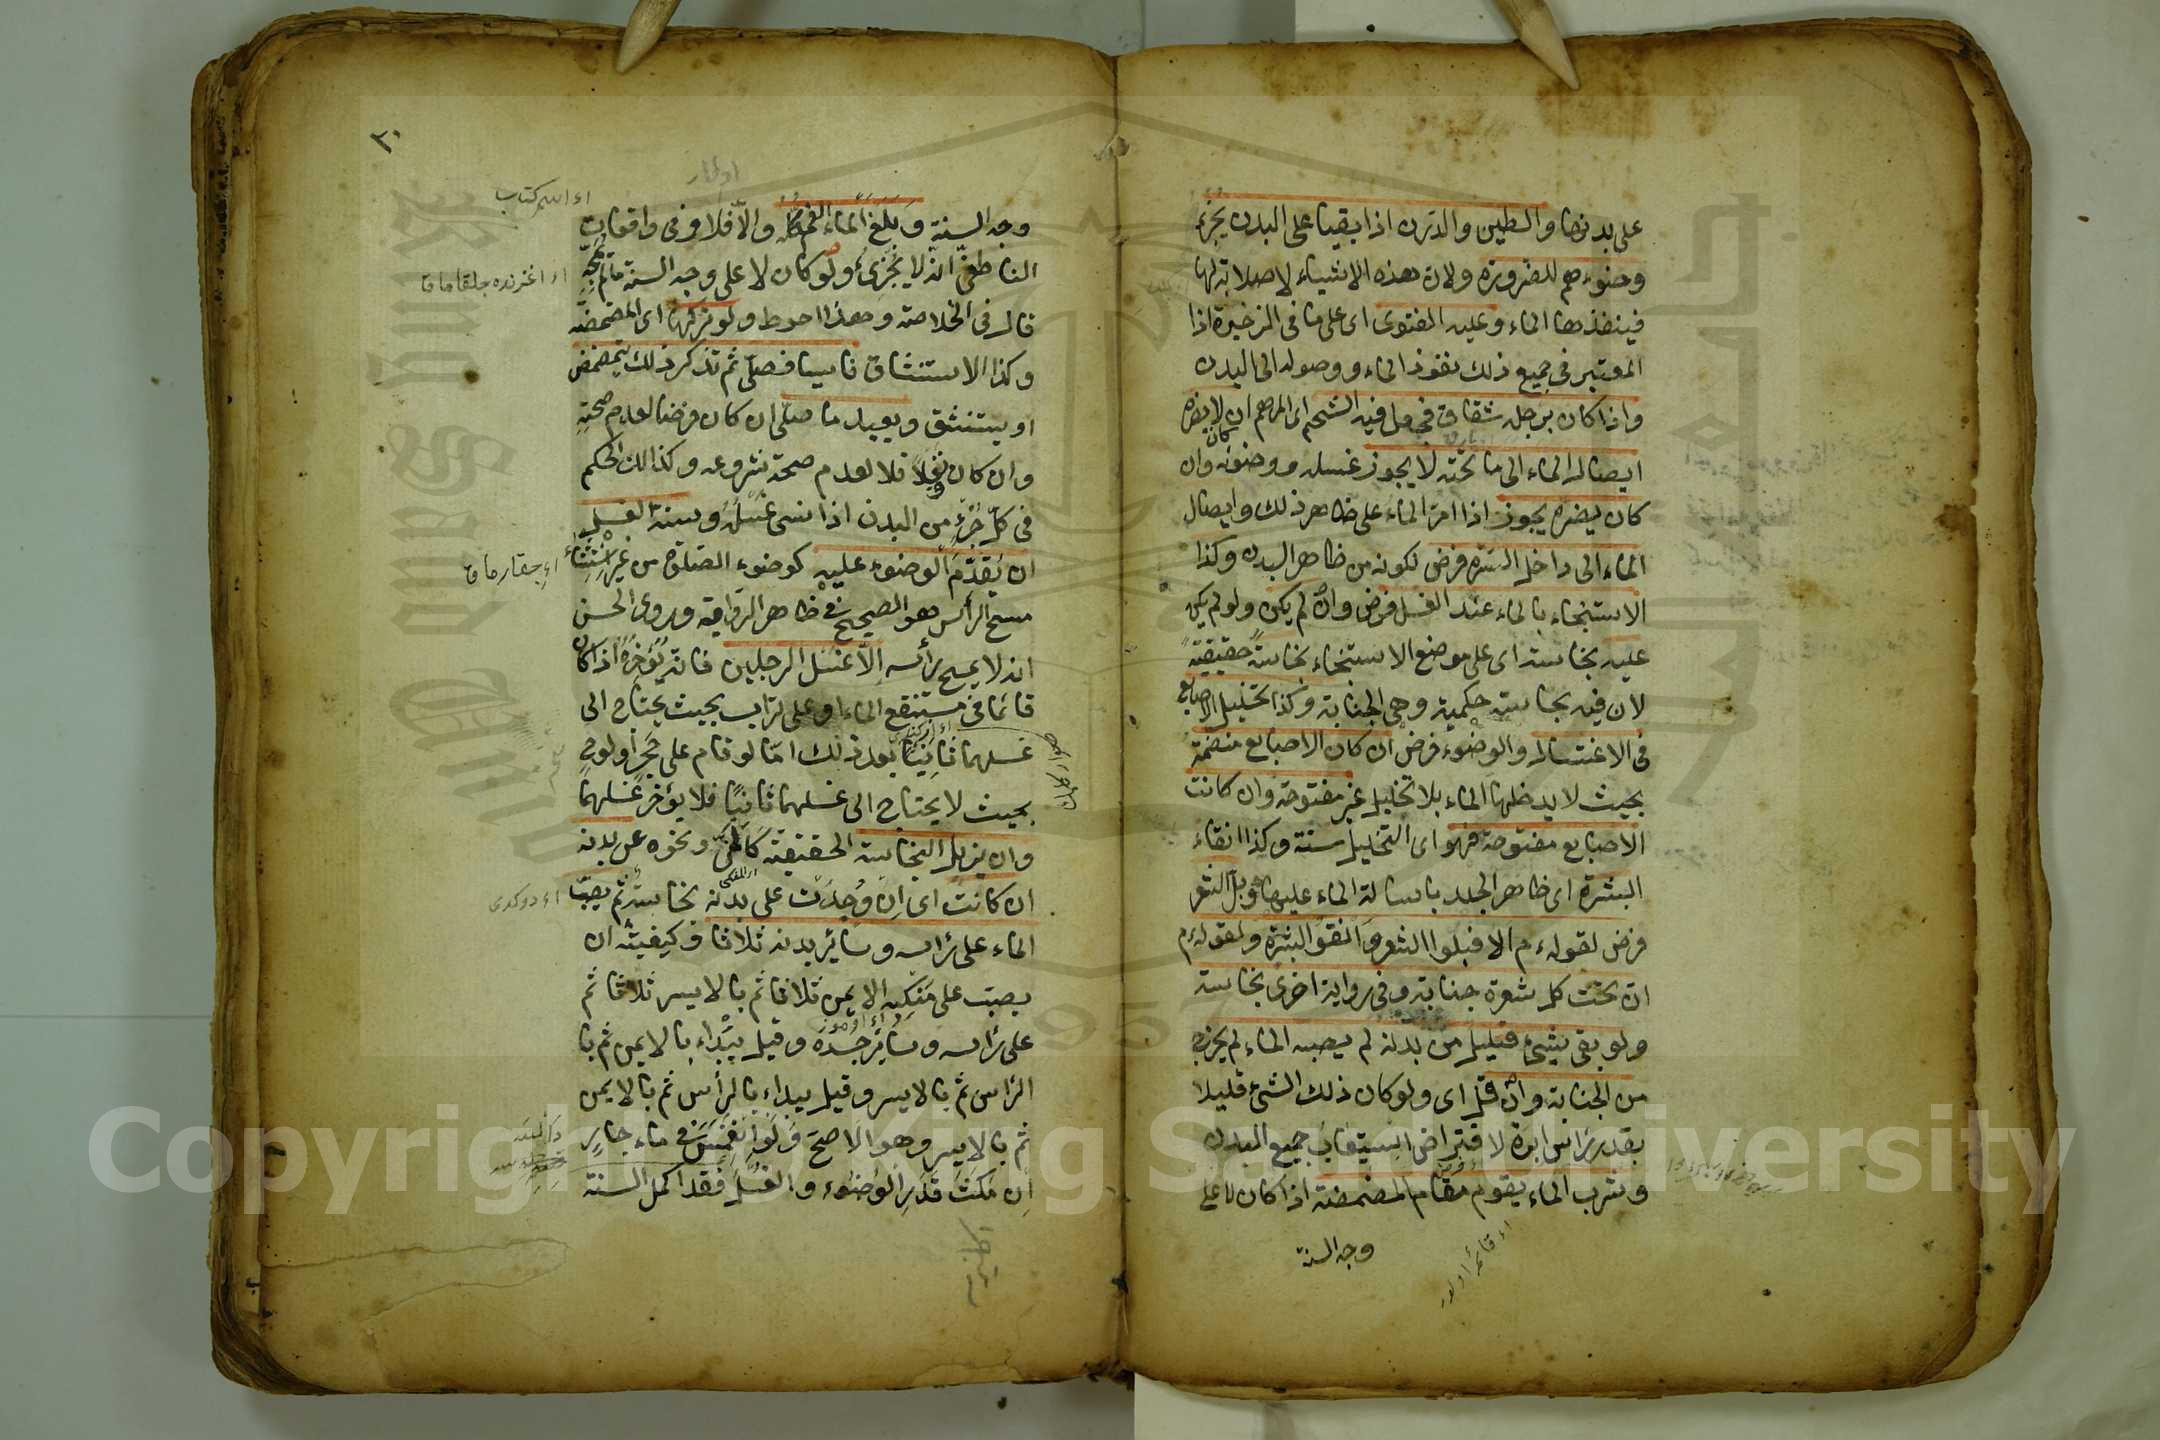 على بدنها والطين والدرن اذا بقيا على البدن يجزء
وضوءهم للضرورة ولان هذه الاشياء لا صلابة لها
فينفذها الماء وعليه الفتوى اى على ما فى الذخيرة اذا
المعتبر فى جميع ذلك نفوذ الماء ووصوله الى البدن
واذا كان برجله شقاق فجعل فيه الشحم اى المرهم ان كان لا يضره
ايصال الماء الى ما تحته لا يجوز غسله ووضوئه وان
كان يضره يجوز اذا امر الماء على ظاهر ذلك وايصال
الماء الى داخل السرة فرض لكونه من ظاهر البدن وكذا
الاستنجاء بالماء عند الغسل فرض وان لم يكن ولو لم يكن
عليه نجاسة اى على موضع الاستنجاء نجاسة حقيقية
لان فيه نجاسة حكمية وهى الجنابة وكذا تخليل الاصابع
فى الاغتسال والوضوء فرض ان كان الاصابع منضمة
بحيث لا يدخلها الماء بلا تخليل غير مفتوحة وان كانت
الاصابع مفتوحة فهو اى التخليل سنة وكذا انقاء
البشرة اى ظاهر الجلد باسالة الماء عليها وبل الشعر
فرض لقوله ءم الا فبلوا الشعر وانقوا البشرة ولقوله ءم
ان تحت كل شعرة جنابة وفى رواية اخرى نجاسة
ولو بقى شئ قليل من بدنه لم يصبه الماء لم يخرج
من الجنابة وان قل اى ولو كان ذلك الشئ قليلا
بقدر رأس ابرة لافتراض استيعاب جميع البدن
وشرب الماء يقوم مقام المضمضة اذا كان لا على
وجه السنة
٣٠
وجه السنة وبلغ الماء الفم كله والا فلا وفى واقعات
الناطفى انه لا يجزئ ولو كان لا على وجه السنة ما لم يمجه
قال فى الخلاصة وهذا احوط ولو تركها اى المضمضة
وكذا الاستنشاق ناسيا فصلى ثم تذكر ذلك يتمضمض
او يستنشق ويعيد ما صلى ان كان فرضا لعدم صحته
وان كان نفلا فلا لعدم صحة شروعه وكذا لك الحكم
فى كل جزء من البدن اذا نسى غسله وسنة الغسل
ان يقدم الوضوء عليه كوضوء الصلوة من غير استثناء
مسح الرأس هو الصحيح فى ظاهر الرواية وروى الحسن
انه لا يمسح رأسه الا غسل الرجلين فانه يؤخره اذا كان
قائما فى مستنقع الماء او على تراب بحيث يحتاج الى
غسلهما ثانيا بعد ذلك اما لو قام على حجر او لوح
بحيث لا يحتاج الى غسلهما ثانيا فلا يؤخر غسلهما
وان يزيل النجاسة الحقيقية كالمنى ونحوه عن بدنه
ان كانت اى ان وجدت على بدنه نجاسة ثم يصب
الماء على رأسه وسائر بدنه ثلاثا وكيفيته ان
يصب على منكبه الايمن ثلاثا ثم بالايسر ثلاثا ثم
على رأسه وسائر جسده وقيل يبداء بالايمن ثم با
الرأس ثم بالايسر وقيل يبداء بالرأس ثم بالايمن
ثم بالايسر وهو الاصح ولو انغمس فى ماء جار
ان مكث قدر الوضوء والغسل فقد اكمل السنة
Copyright © King Saud University
King Saud University
1957